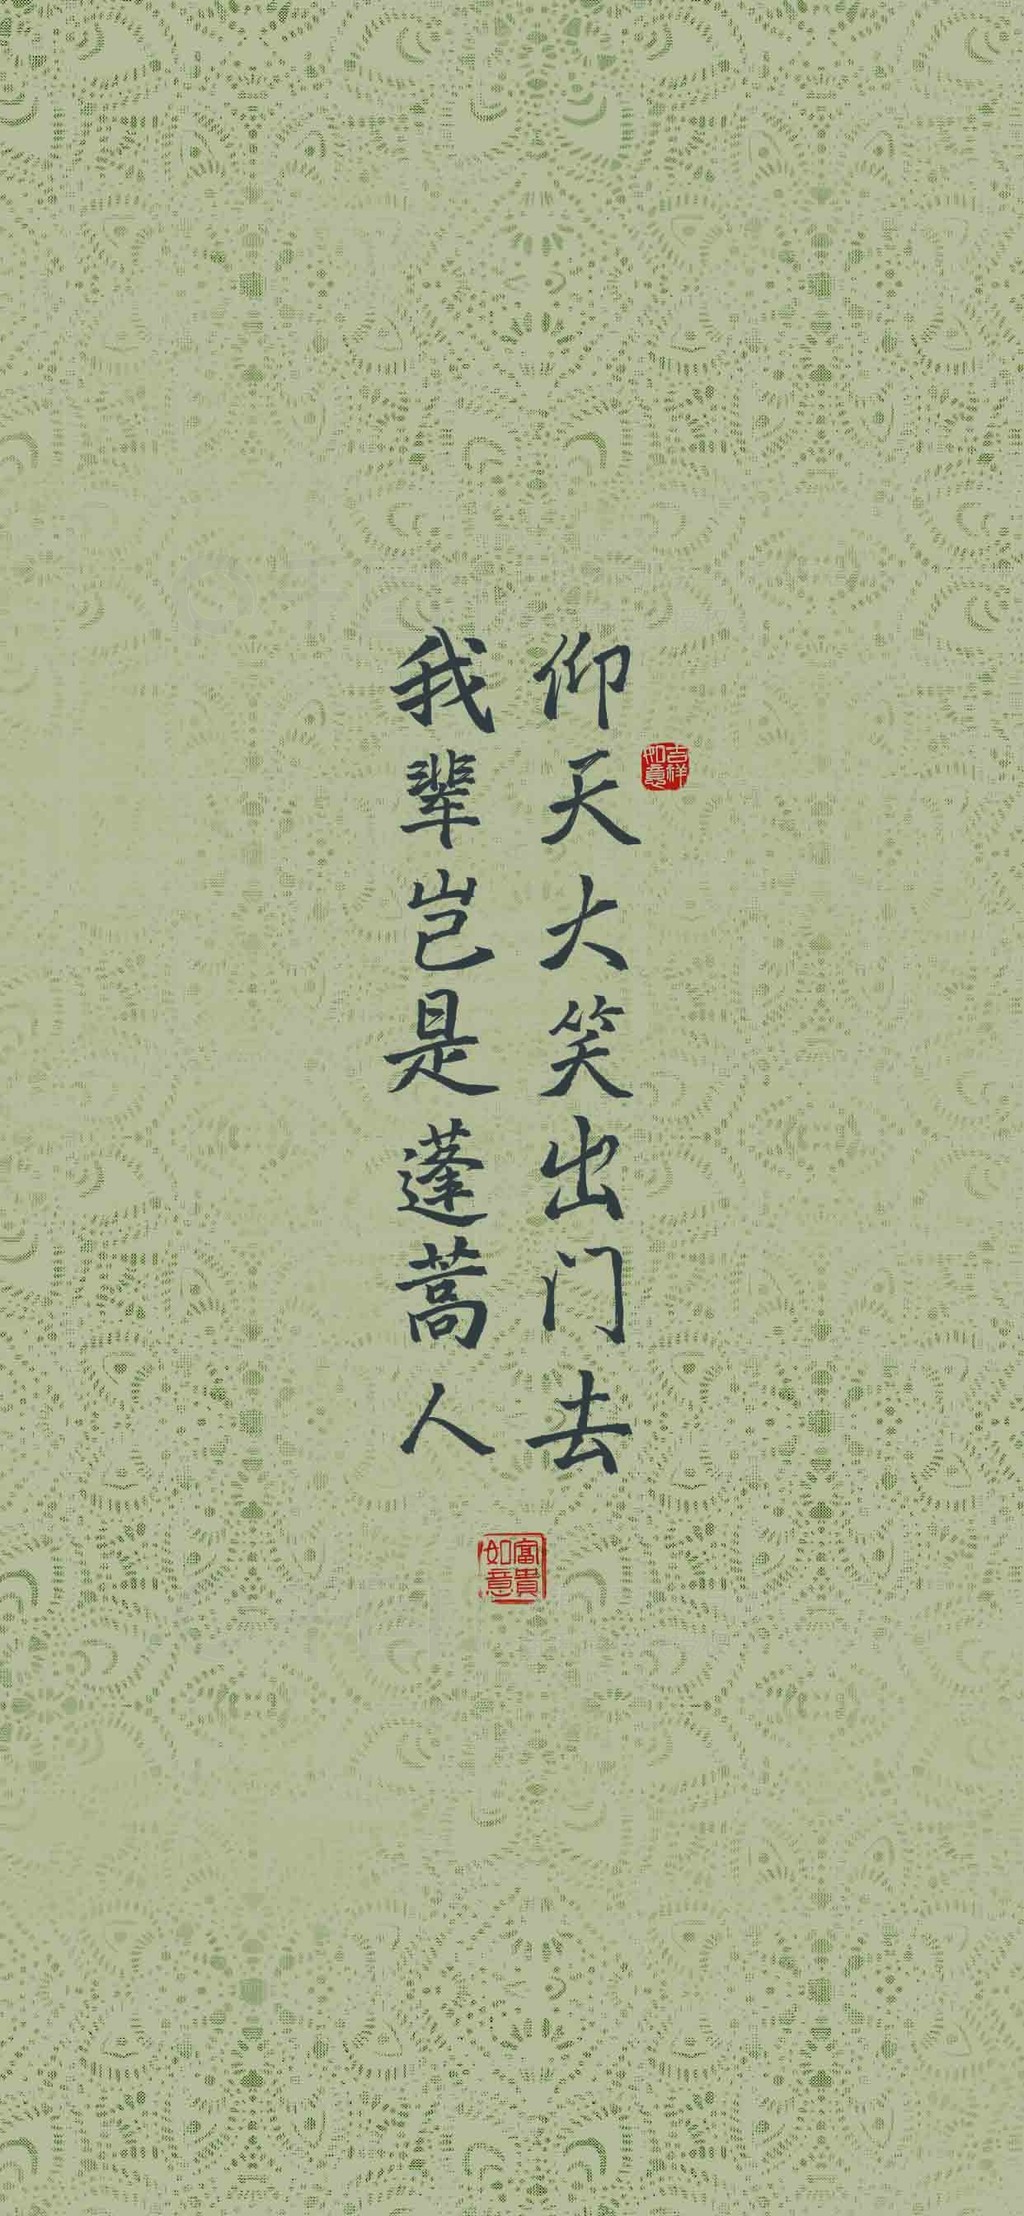 仰天大笑出门去
我辈岂是蓬蒿人
吉祥如意
富貴如意